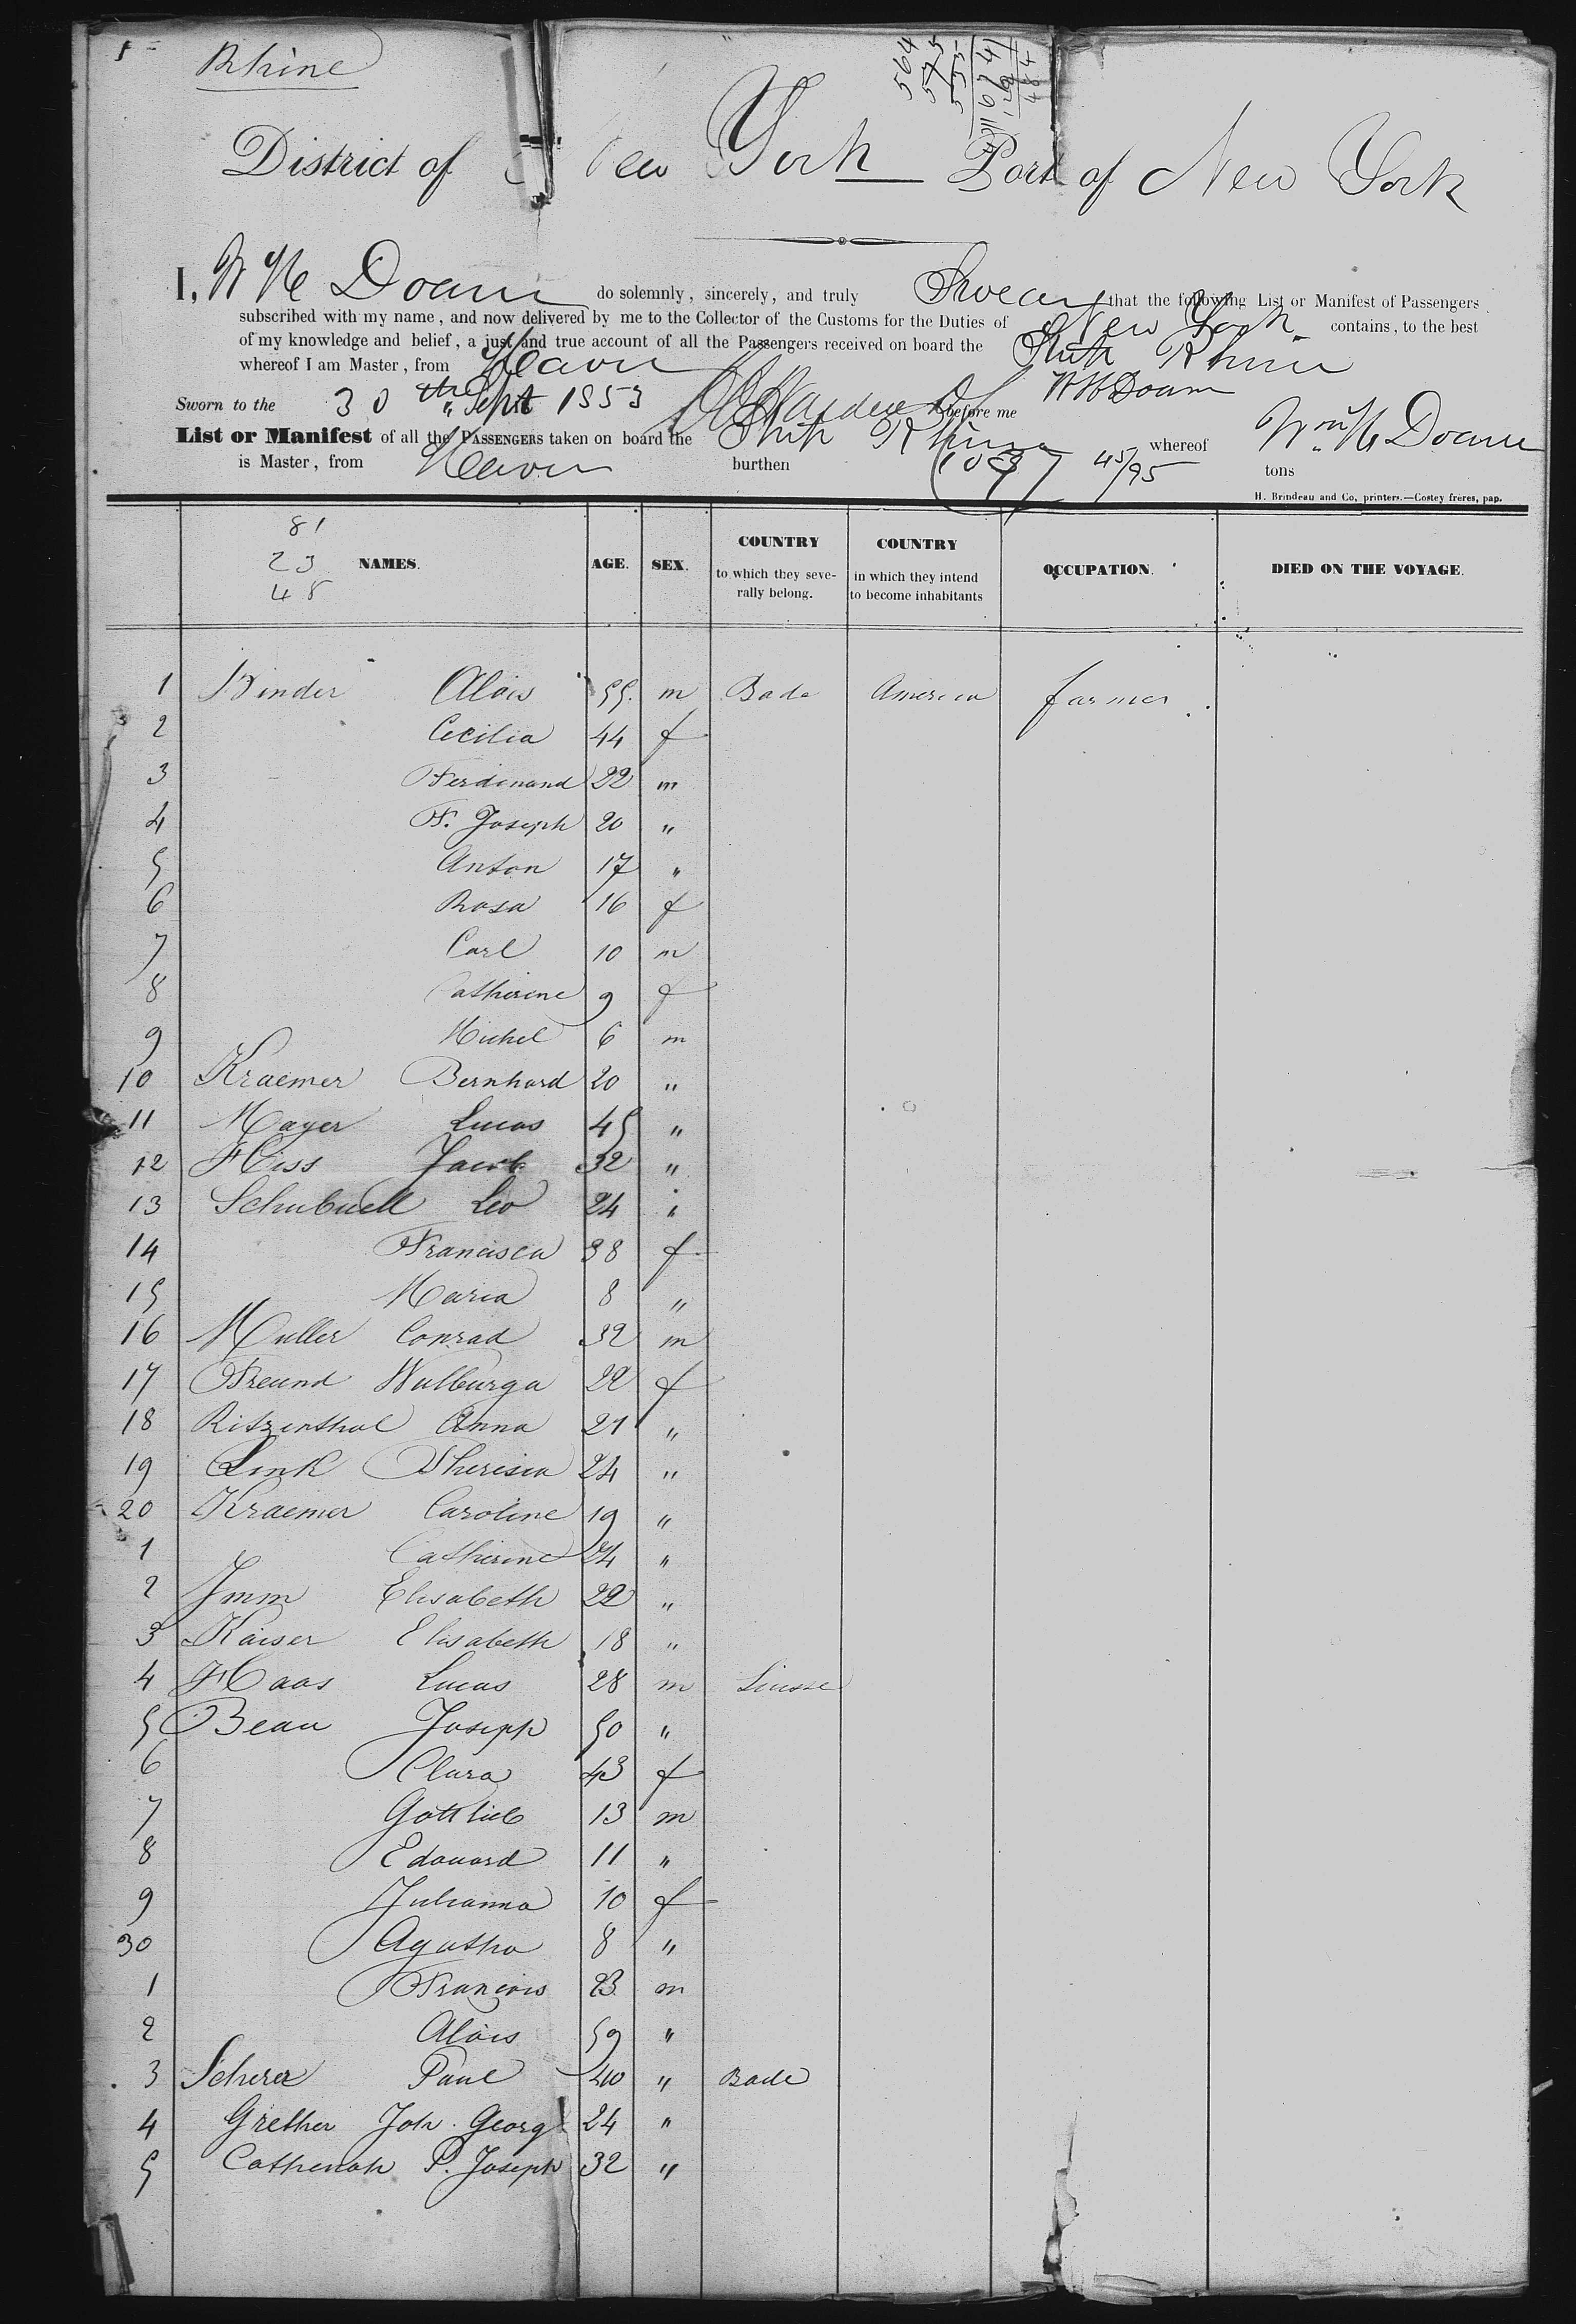 Rhine
564
575
555
District of New York Port of New York
I, W H Doane do solemnly, sincerely, and truly Swear that the following List or Manifest of Passengers
subscribed with my name, and now delivered by me to the Collector of the Customs for the Duties of New York contains, to the best
of my knowledge and belief, a just and true account of all the Passengers received on board the Ship Rhine
whereof I am Master, from Havre
W H Doane
Sworn to the 30th Sept 1853 before me
List or Manifest of all the PASSENGERS taken on board the Ship Rhine whereof Wm H Doane
is Master, from Havre burthen 45/95 tons
H. Brindeau and Co, printers.—Costey frères, pap.
81
23
48
NAMES. AGE. SEX. COUNTRY to which they severally belong. COUNTRY in which they intend to become inhabitants OCCUPATION. DIED ON THE VOYAGE.
1 Binder Alois 55. m Bade America farmer
2 Cecilia 44 f
3 Ferdinand 22 m
4 F. Joseph 20 "
5 Anton 17 "
6 Rosa 16 f
7 Carl 10 m
8 Catherine 9 f
9 Michel 6 m
10 Kraemer Bernhard 20 "
11 Mayer Lucas 45 "
12 Hiss Jacob 32 "
13 Schubnell Leo 24 "
14 Francisca 38 f
15 Maria 8 "
16 Muller Conrad 32 m
17 Freund Walburga 22 f
18 Ritzenthal Anna 21 "
19 Link Theresia 24 "
20 Kraemer Caroline 19 "
1 Catherine 24 "
2 Imm Elisabeth 22 "
3 Kaiser Elisabeth 18 "
4 Haas Lucas 28 m Suisse
5 Beau Joseph 50 "
6 Clara 43 f
7 Gottlieb 13 m
8 Edouard 11 "
9 Julianna 10 f
30 Agatha 8 "
1 François 23 m
2 Alois 59 "
3 Scherer Paul 40 " Bade
4 Grether Joh. Georg 24 "
5 P. Joseph 32 "